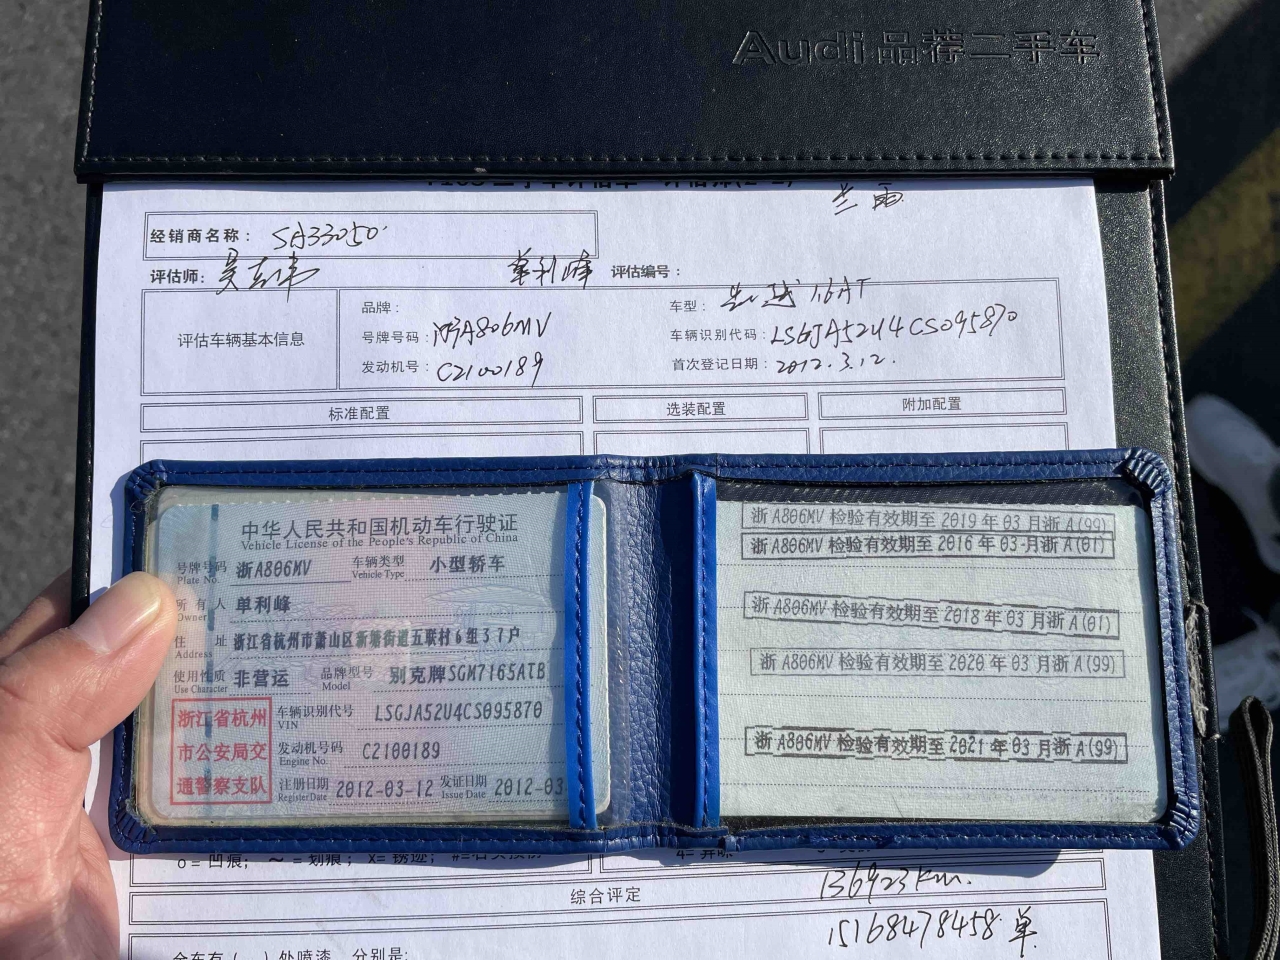 Audi 品荐二手车
兰雨
经销商名称： SA33050
评估师： 单利峰 评估编号：
评估车辆基本信息
品牌： 车型： 1.6AT
号牌号码： 浙A806MV 车辆识别代码： LSGJA52U4CS095870
发动机号： C2100189 首次登记日期： 2012.3.12.
标准配置 选装配置 附加配置
中华人民共和国机动车行驶证
Vehicle License of the People's Republic of China
号牌号码 浙A806MV 车辆类型 小型轿车
Plate No. Vehicle Type
所有人 单利峰
Owner
住址 浙江省杭州市萧山区新塘街道五联村6组37户
Address
使用性质 非营运 品牌型号 别克牌SGM7165ATB
Use Character Model
浙江省杭州
市公安局交
通警察支队
车辆识别代号 LSGJA52U4CS095870
VIN
发动机号码 C2100189
Engine No.
注册日期 2012-03-12 发证日期 2012-03
Register Date Issue Date
浙A806MV 检验有效期至 2019 年 03 月浙 A(99)
浙A806MV 检验有效期至 2016 年 03 月浙 A(01)
浙A806MV 检验有效期至 2018 年 03 月浙 A(01)
浙A806MV 检验有效期至 2020 年 03 月浙 A(99)
浙A806MV 检验有效期至 2021 年 03 月浙 A(99)
o= 凹痕； ～= 划痕； x= 锈迹；
综合评定
136923km.
15168478458 单
全车有（ ）处喷漆，分别是: